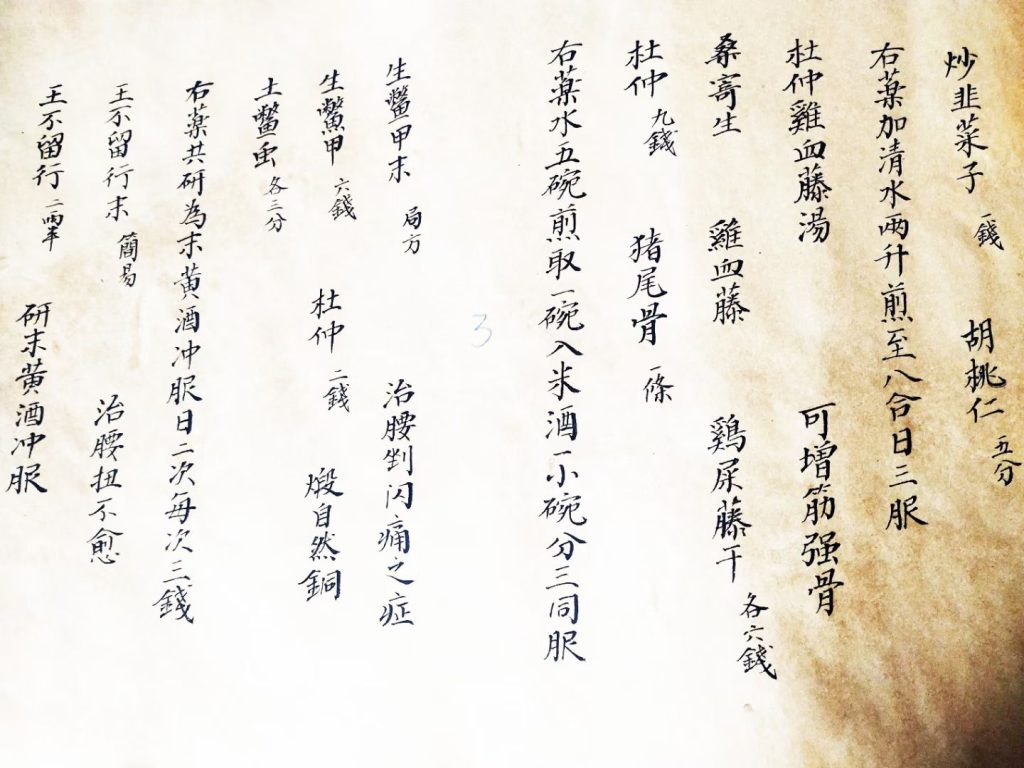 炒韭菜子 一錢 胡桃仁 五分
右藥加清水兩升煎至八合日三服
杜仲雞血藤湯 可增筋强骨
桑寄生 雞血藤 鷄屎藤干 各六錢
杜仲 九錢 猪尾骨 一條
右藥水五碗煎取一碗入米酒一小碗分三同服
3
生鱉甲末 局方 治腰剉闪痛之症
生鱉甲 六錢 杜仲 二錢 煅自然銅
土鱉虫 各三分
右藥共研為末黄酒冲服日二次每次三錢
王不留行末 簡易 治腰扭不愈
王不留行 二两半 研末黄酒冲服